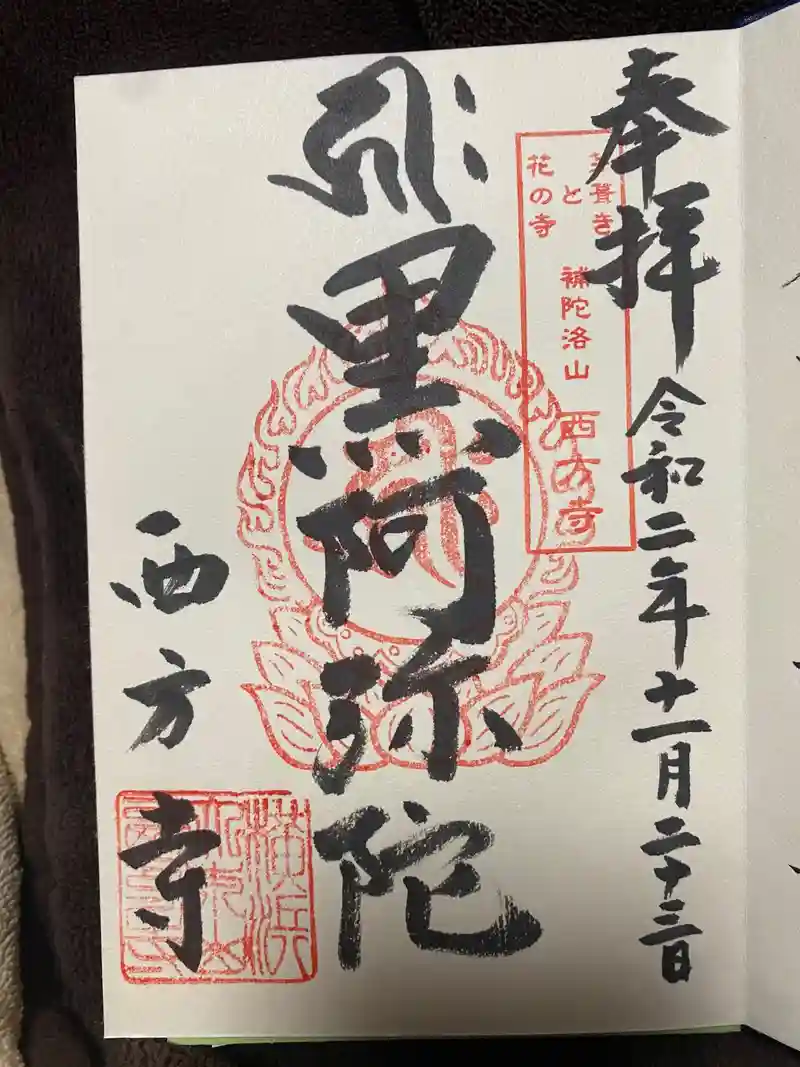 奉拝
令和二年十一月二十三日
茅葺き
と
花の寺
補陀洛山 西方寺
黒阿弥陀
西方寺
横浜